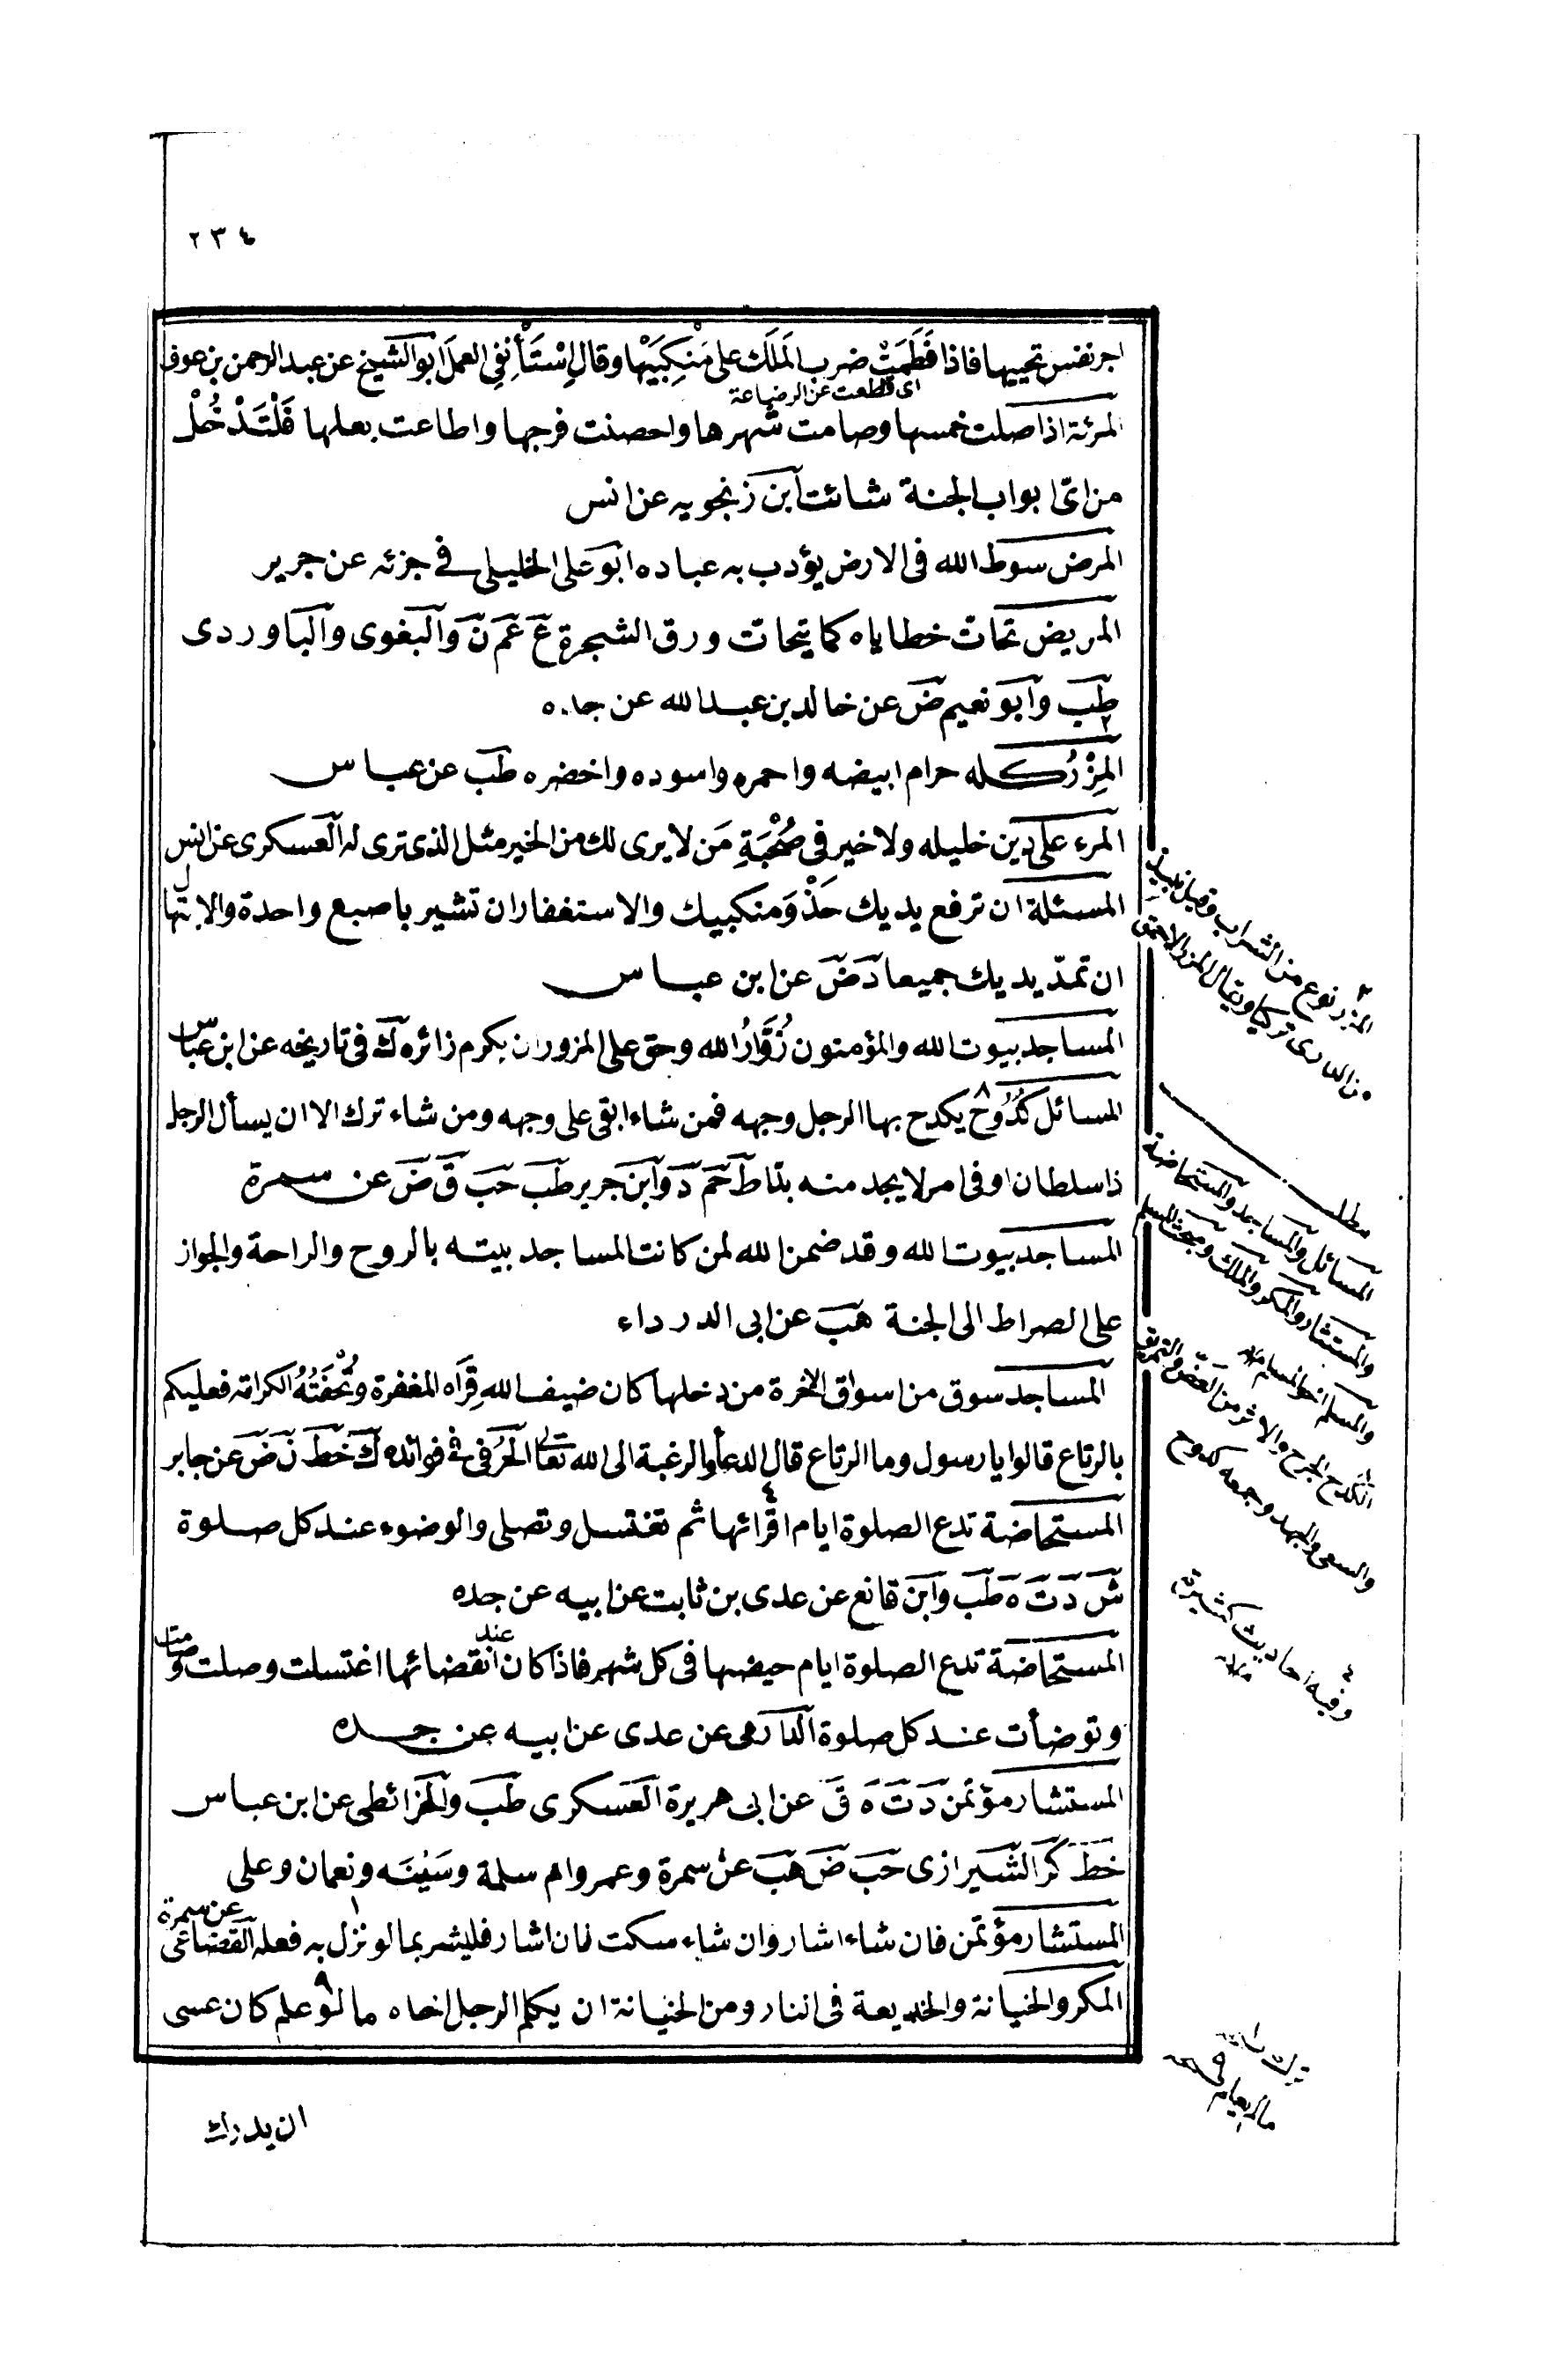 ٢٣٤
اجر نفس تحييها فاذا فَطَمَتْ ضرب المَلَك على مَنْكِبَيْها وقال اِسْتَأْنِفِى العمل ابو الشيخ عن عبد الرحمن بن عوف
اى قطعت عن الرضاعة
المرئة اذا صلت خمسها وصامت شهرها واحصنت فرجها واطاعت بعلها فَلْتَدْخُلْ
من اىّ ابواب الجنة شائت ابن زنجويه عن انس
المرض سوط الله فى الارض يؤدب به عباده ابو على الخليلى فى جزئه عن جرير
المريض تحاتّ خطاياه كما يتحاتّ ورق الشجرة ع عم ن والبغوى والباوردى
طب وابو نعيم ض عن خالد بن عبد الله عن جده
٢
المِزْرُ كله حرام ابيضه واحمره واسوده واخضره طب عن عباس
المرء على دين خليله ولا خير فى صُحْبَةِ مَن لا يرى لك من الخير مثل الذى ترى له العسكرى عن انس
المسئلة ان ترفع يديك حَذْوَ منكبيك والاستغفار ان تشير باصبع واحدة والابتهال
ان تمدّ يديك جميعا د ض عن ابن عباس
المساجد بيوت الله والمؤمنون زُوَّارُ الله وحق على المزور ان يكرم زائره ك فى تاريخه عن ابن عباس
المسائل كُدُوحٌ ٨ يكدح بها الرجل وجهه فمن شاء ابقى على وجهه ومن شاء ترك الا ان يسأل الرجل
ذا سلطان او فى امر لا يجد منه بدّا ط حم د وابن جرير طب حب ق ض عن سمرة
المساجد بيوت الله وقد ضمن الله لمن كانت المساجد بيته بالروح والراحة والجواز
على الصراط الى الجنة هب عن ابى الدرداء
المساجد سوق من اسواق الاخرة من دخلها كان ضيف الله قِرَاه المغفرة وتُحْفَتُهُ الكرامة فعليكم
بالرتاع قالوا يا رسول وما الرتاع قال الدعأ والرغبة الى الله تعالى الحُرفى فى فوائده ك خط ن ض عن جابر
المستحاضة تدع الصلوة ايام اقرائها ٤ ثم تغتسل وتصلى والوضوء عند كل صلوة
ش د ت ه طب وابن قانع عن عدى بن ثابت عن ابيه عن جده
المستحاضة تدع الصلوة ايام حيضها فى كل شهر فاذا كان عند انقضائها اغتسلت وصلت وصامت
وتوضأت عند كل صلوة الدارمى عن عدى عن ابيه عن جده
المستشار مؤتمن د ت ه ق عن ابى هريرة العسكرى طب والخرائطى عن ابن عباس
خط كر الشيرازى حب ض هب عن سمرة وعمر وام سلمة ونعمان وعلى
المستشار مؤتمن فان شاء اشار وان شاء سكت فان اشار فليشر بما لو نزل به فعله القضاعى عن سمرة
المكر والخيانة والخديعة فى النار ومن الخيانة ان يكلم الرجل اخاه ما لو ٩ علم كان عسى
ان يدرك
٢
المزر نوع من الشراب وقيل نبيذ
من الذرة ويقال المزر الاحمق
مطلب
المسائل والمساجد والمستحاضة
والمستشار والمكر والملك وبحث المسلم
والمسلم اخو المسلم
٨
الكدح الجرح والاثر من العض
والسعى والجهد وجمعه كدوح
٤
وفيه احاديث كثيرة
٩